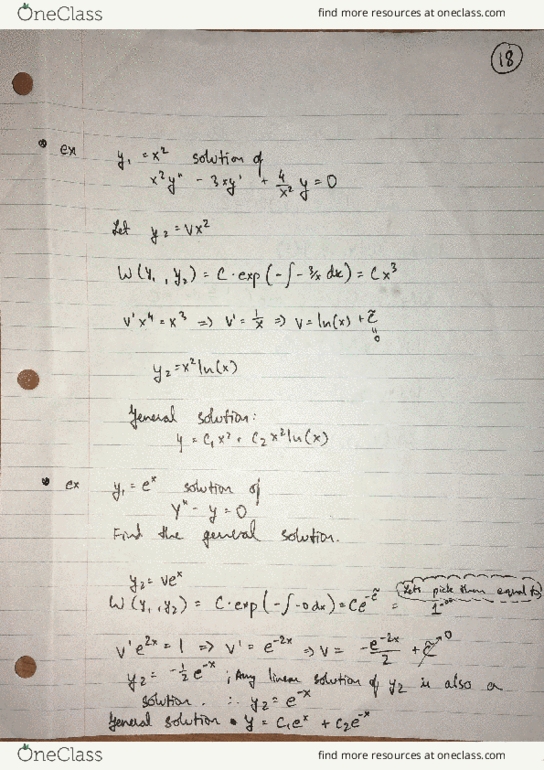 OneClass find more resources at oneclass.com
18
ex y₁ = x² solution of
x²y" - 3xy' + 4/x² y = 0
Let y₂ = vx²
W(y₁, y₂) = C·exp(-∫-3/x dx) = Cx³
v'x⁴ = x³ => v' = 1/x => v = ln(x) + c̃
"
0
y₂ = x² ln(x)
General solution:
y = C₁x² + C₂x² ln(x)
ex y₁ = eˣ solution of
y" - y = 0
Find the general solution.
y₂ = veˣ
W(y₁, y₂) = C·exp(-∫-0dx) = Ce^-c̃ = 1 Lets pick them equal to
v'e^2x = 1 => v' = e^-2x => v = -e^-2x/2 + c̃ 0
y₂ = -½e^-x ; Any linear solution of y₂ is also a
solution. ∴ y₂ = e^-x
General solution • y = C₁eˣ + C₂e^-x
OneClass find more resources at oneclass.com